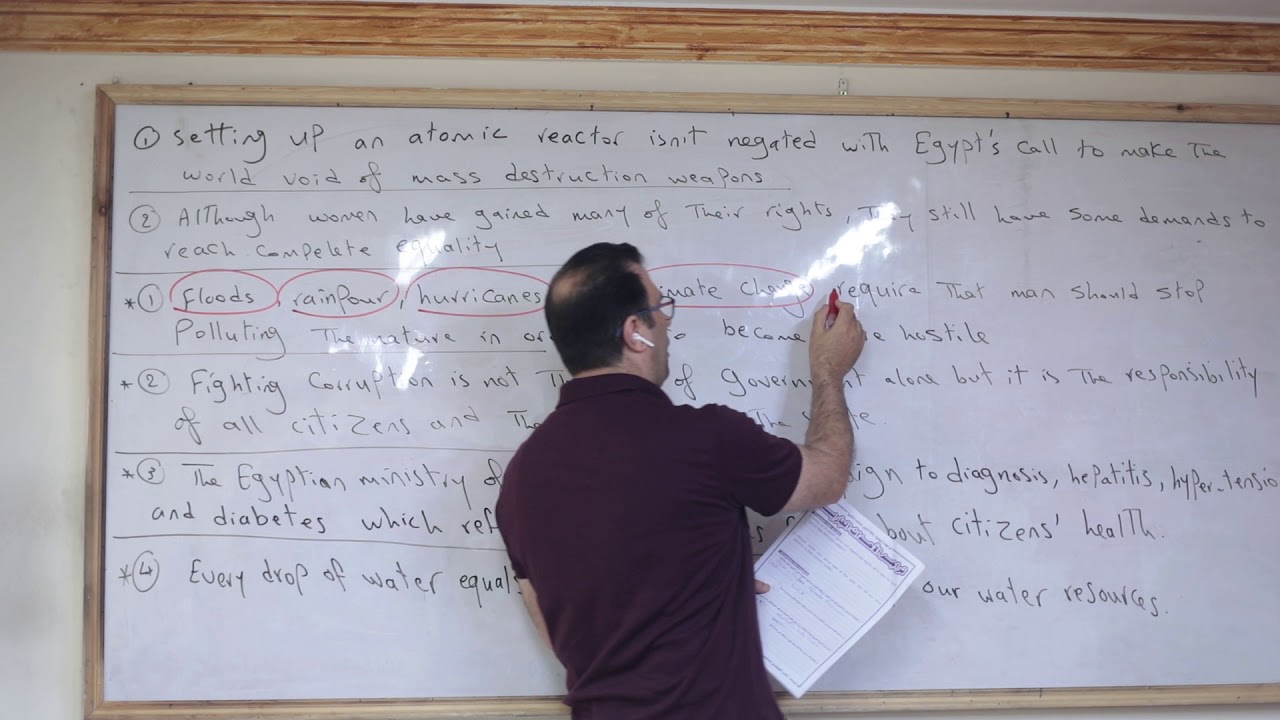 ① Setting up an atomic reactor isn't negated with Egypt's call to make The
world void of mass destruction weapons
② Although women have gained many of Their rights, They still have some demands to
reach compelete equality
*① floods, rainpour, hurricanes climate change require That man should stop
Polluting The nature in become hostile
*② Fighting Corruption is not of Government alone but it is The responsibility
of all citizens and The
*③ The Egyptian ministry of to diagnosis, hepatitis, hyper-tensio
and diabetes which about citizens' health.
*④ Every drop of water equal our water resources.